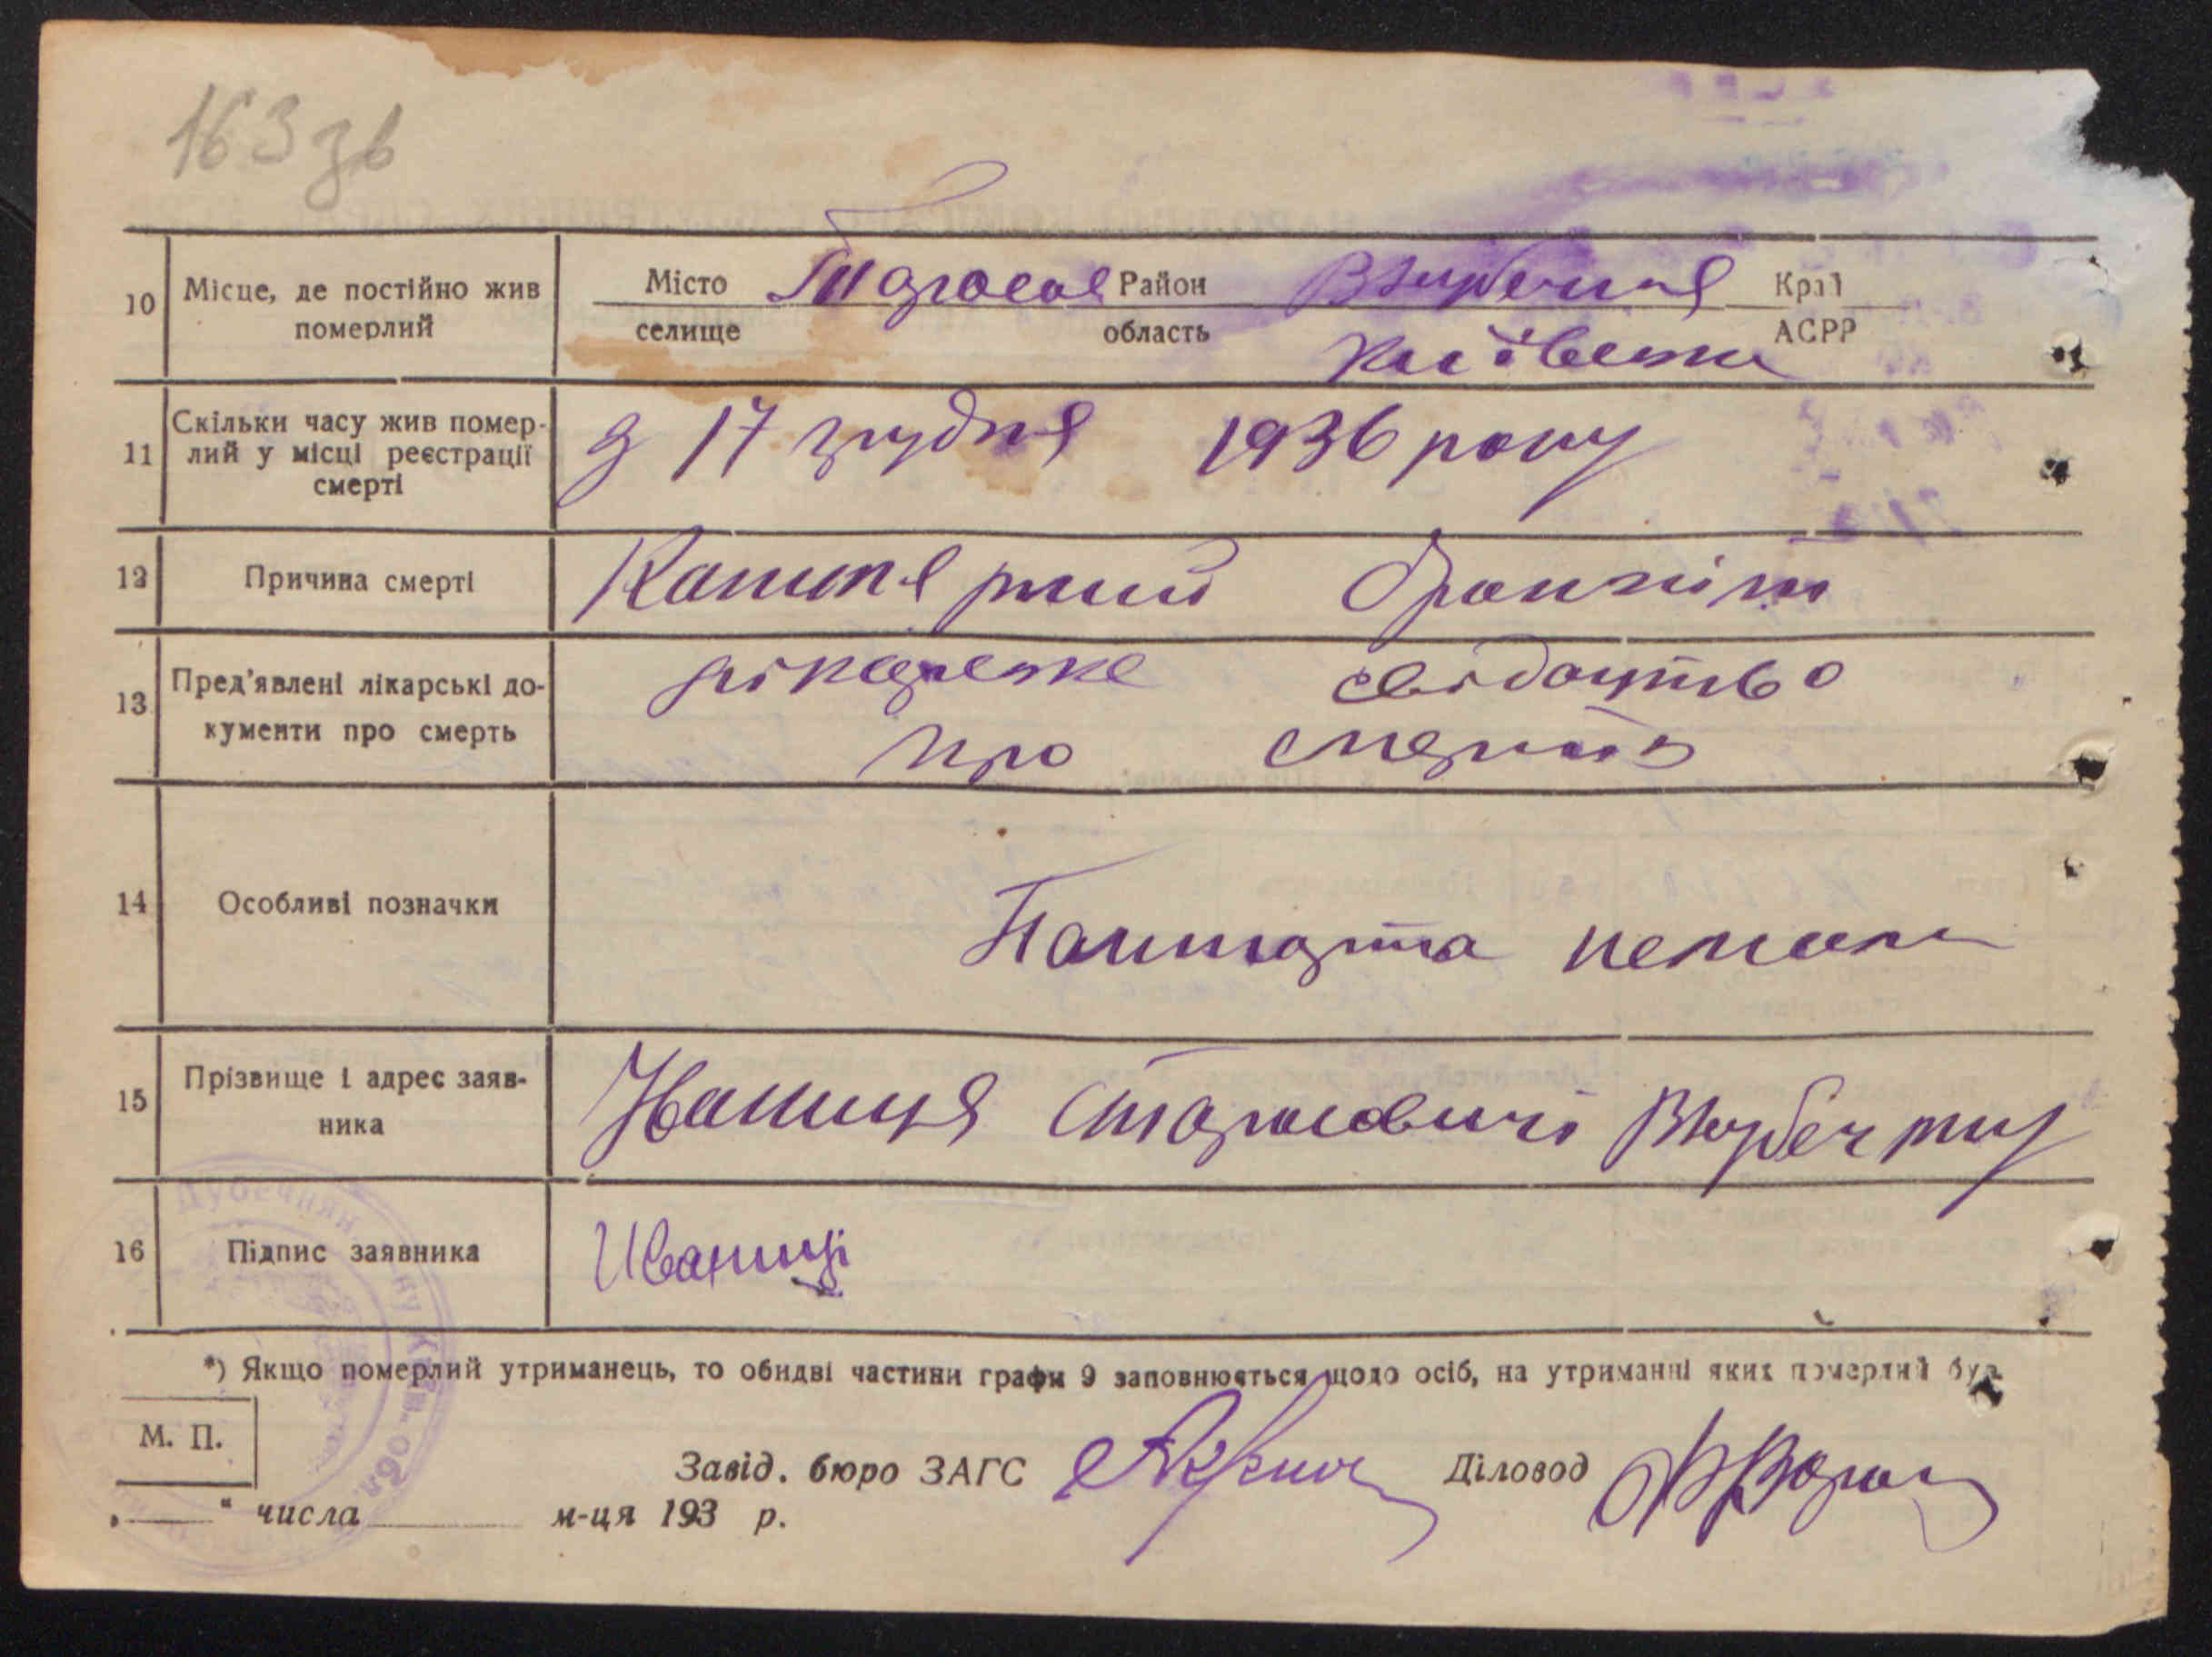 163 зв
10 Місце, де постійно жив померлий
Місто Район Край
селище область АСРР
Київська
11 Скільки часу жив помер-
лий у місці реєстрації
смерті
з 17 грудня 1936 року
12 Причина смерті
Капилярний бронхіт
13 Пред'явлені лікарські до-
кументи про смерть
лікарське свідоцтво
про смерть
14 Особливі позначки
Пашпорта немає
15 Прізвище і адрес заяв-
ника
Іваниця
16 Підпис заявника
Иваниці
*) Якщо померлий утриманець, то обидві частини графи 9 заповнюється щодо осіб, на утриманні яких померлий був
М. П.
Завід. бюро ЗАГС Діловод
„ “ числа м-ця 193 р.